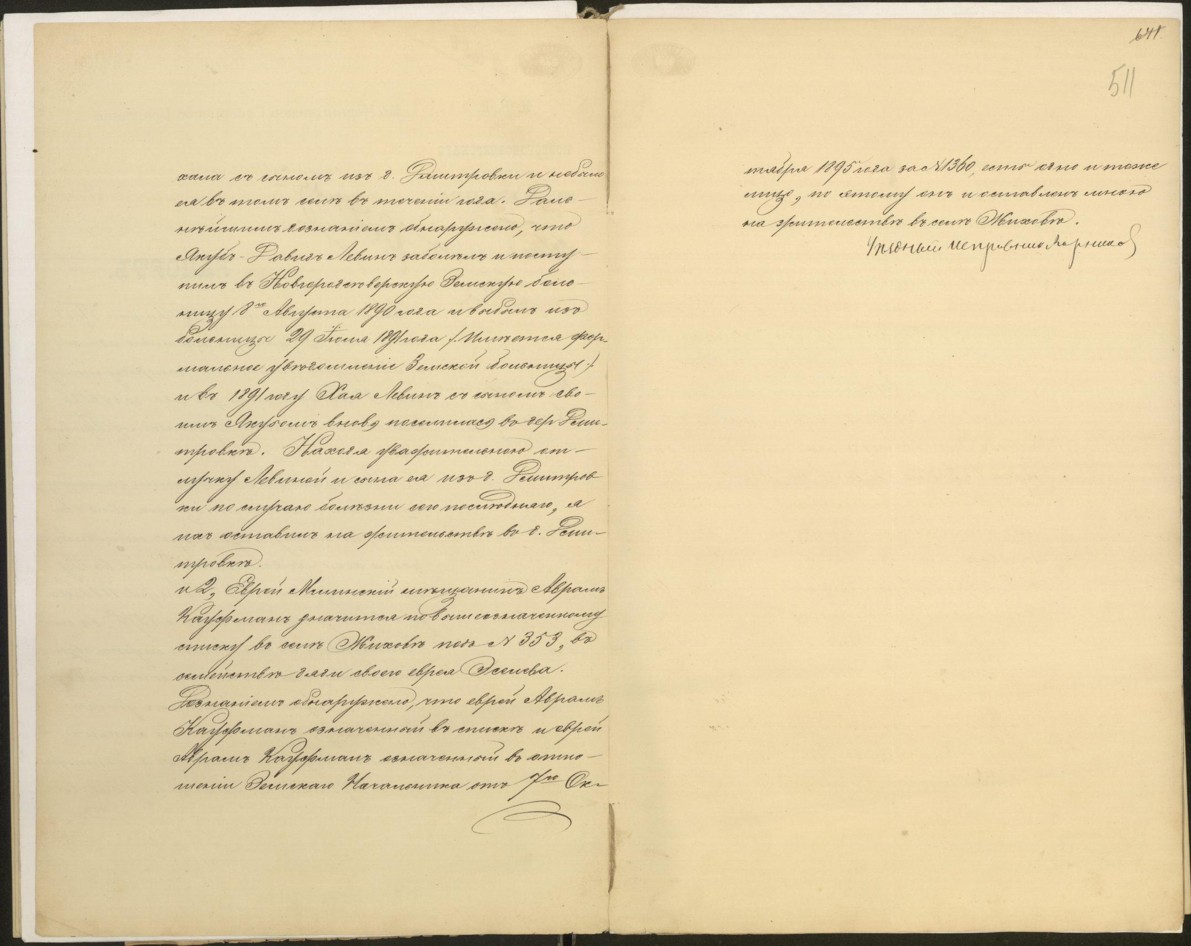 хала съ сыномъ изъ д. Дмитровки и небыла
ея въ томъ селѣ въ теченіи года. Даль-
нѣйшимъ дознаніемъ обнаружено, что
Якубъ-Давидъ Левинъ заболѣлъ и посту-
пилъ въ Новгородсѣверскую Земскую боль-
ницу 8го Августа 1890 года и выбылъ изъ
больницы 29 Іюля 1891 года /Имѣется фор-
мальное увѣдомленіе Земской больницы/
и въ 1891 году Хая Левинъ съ сыномъ сво-
имъ Якубомъ вновь поселилась въ дер Дми-
тровкѣ. Находя уважительною от-
лучку Левиной и сына ея изъ д. Дмитров
ки по случаю болѣзни сего послѣдняго, я
ихъ оставилъ на жительствѣ въ д. Дми-
тровкѣ.
и 2, Еврей Мглинскій мѣщанинъ Аврамъ
Кауфманъ значится по вышеозначенному
списку въ селѣ Жиховѣ подъ № 353, въ
семействѣ дяди своего еврея Эселева.
Дознаніемъ обнаружено, что еврей Аврамъ
Кауфманъ означенный въ спискѣ и еврей
Аврамъ Кауфманъ означенный въ отно-
шеніи Земскаго Начальника отъ 7го Ок-
511
тября 1895 года за № 1360, есть одно и тоже
лицо, по этому онъ и оставленъ мною
на жительствѣ въ селѣ Жиховѣ.
Уѣздный Исправникъ